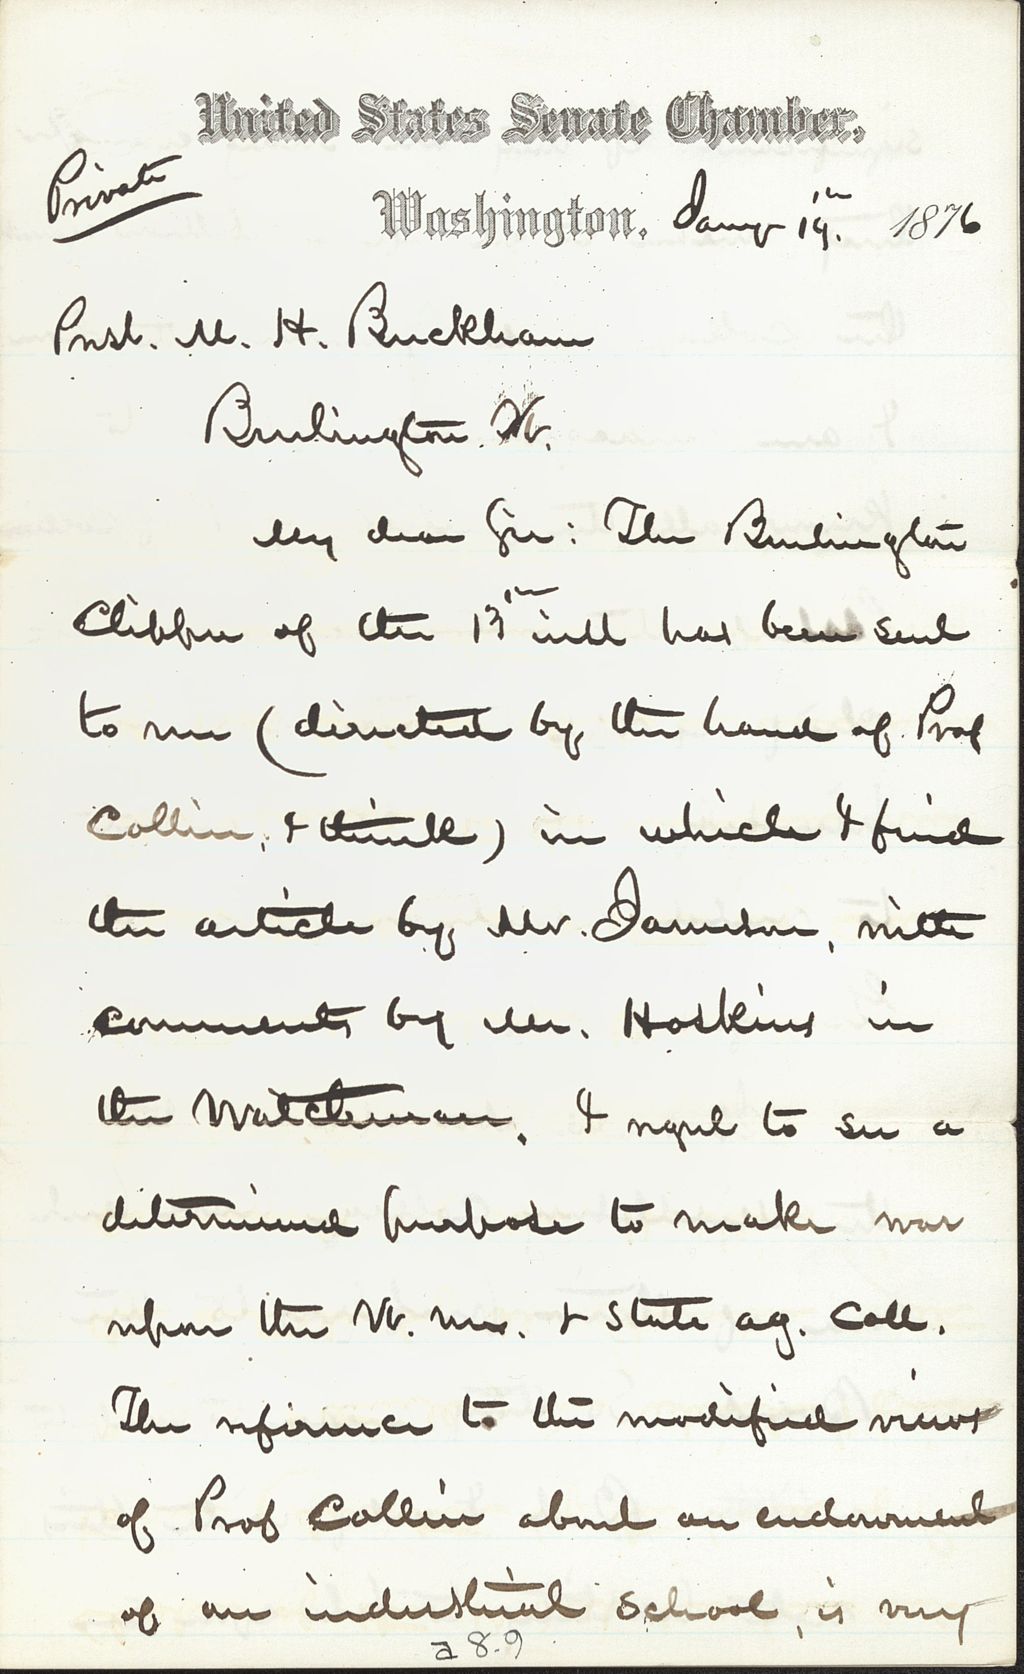 United States Senate Chamber,
Private
Washington, Jany 19th. 1876
Prest. M. H. Buckham
Burlington Vt.
My dear Sir: The Burlington
Clipper of the 13th inst has been sent
to me (directed by the hand of Prof
Collier, I think) in which I find
the article by Mr. Jameson, with
comments by Mr. Hoskins in
the Watchman. I regret to see a
determined purpose to make war
upon the Vt. Uni. & State ag. Coll.
The reference to the modified views
of Prof Collier about an endowment
of an industrial school, is very
a 8.9